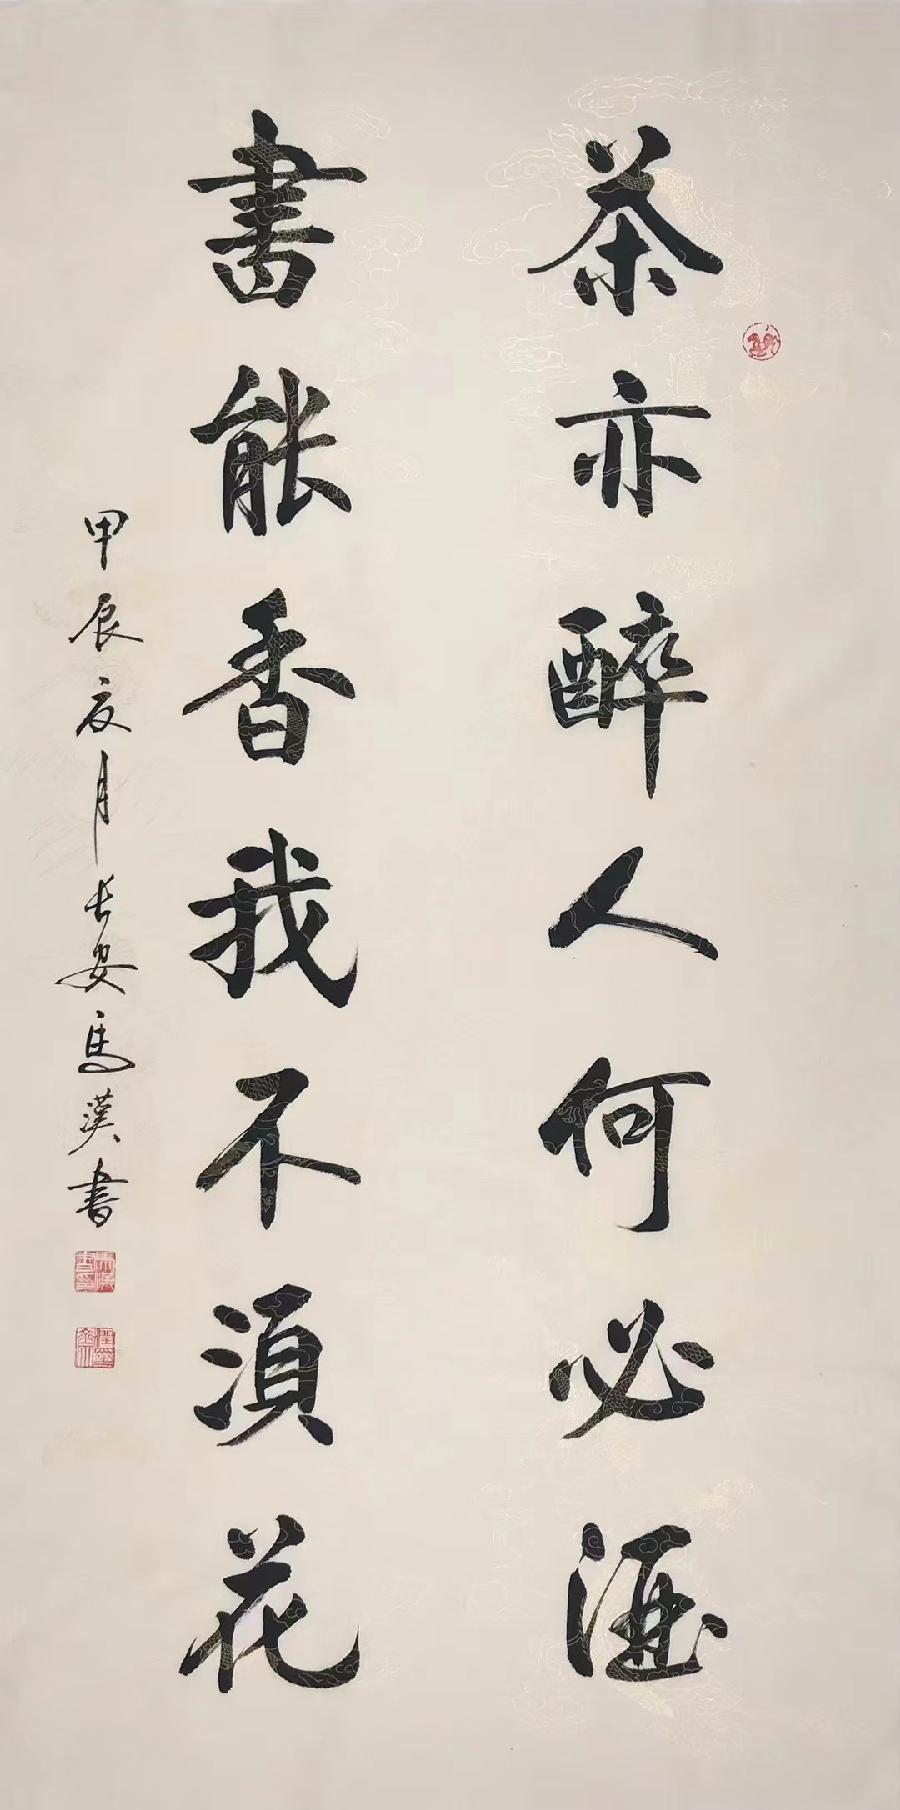 茶亦醉人何必酒
書能香我不須花
甲辰夏月長安馬漢書